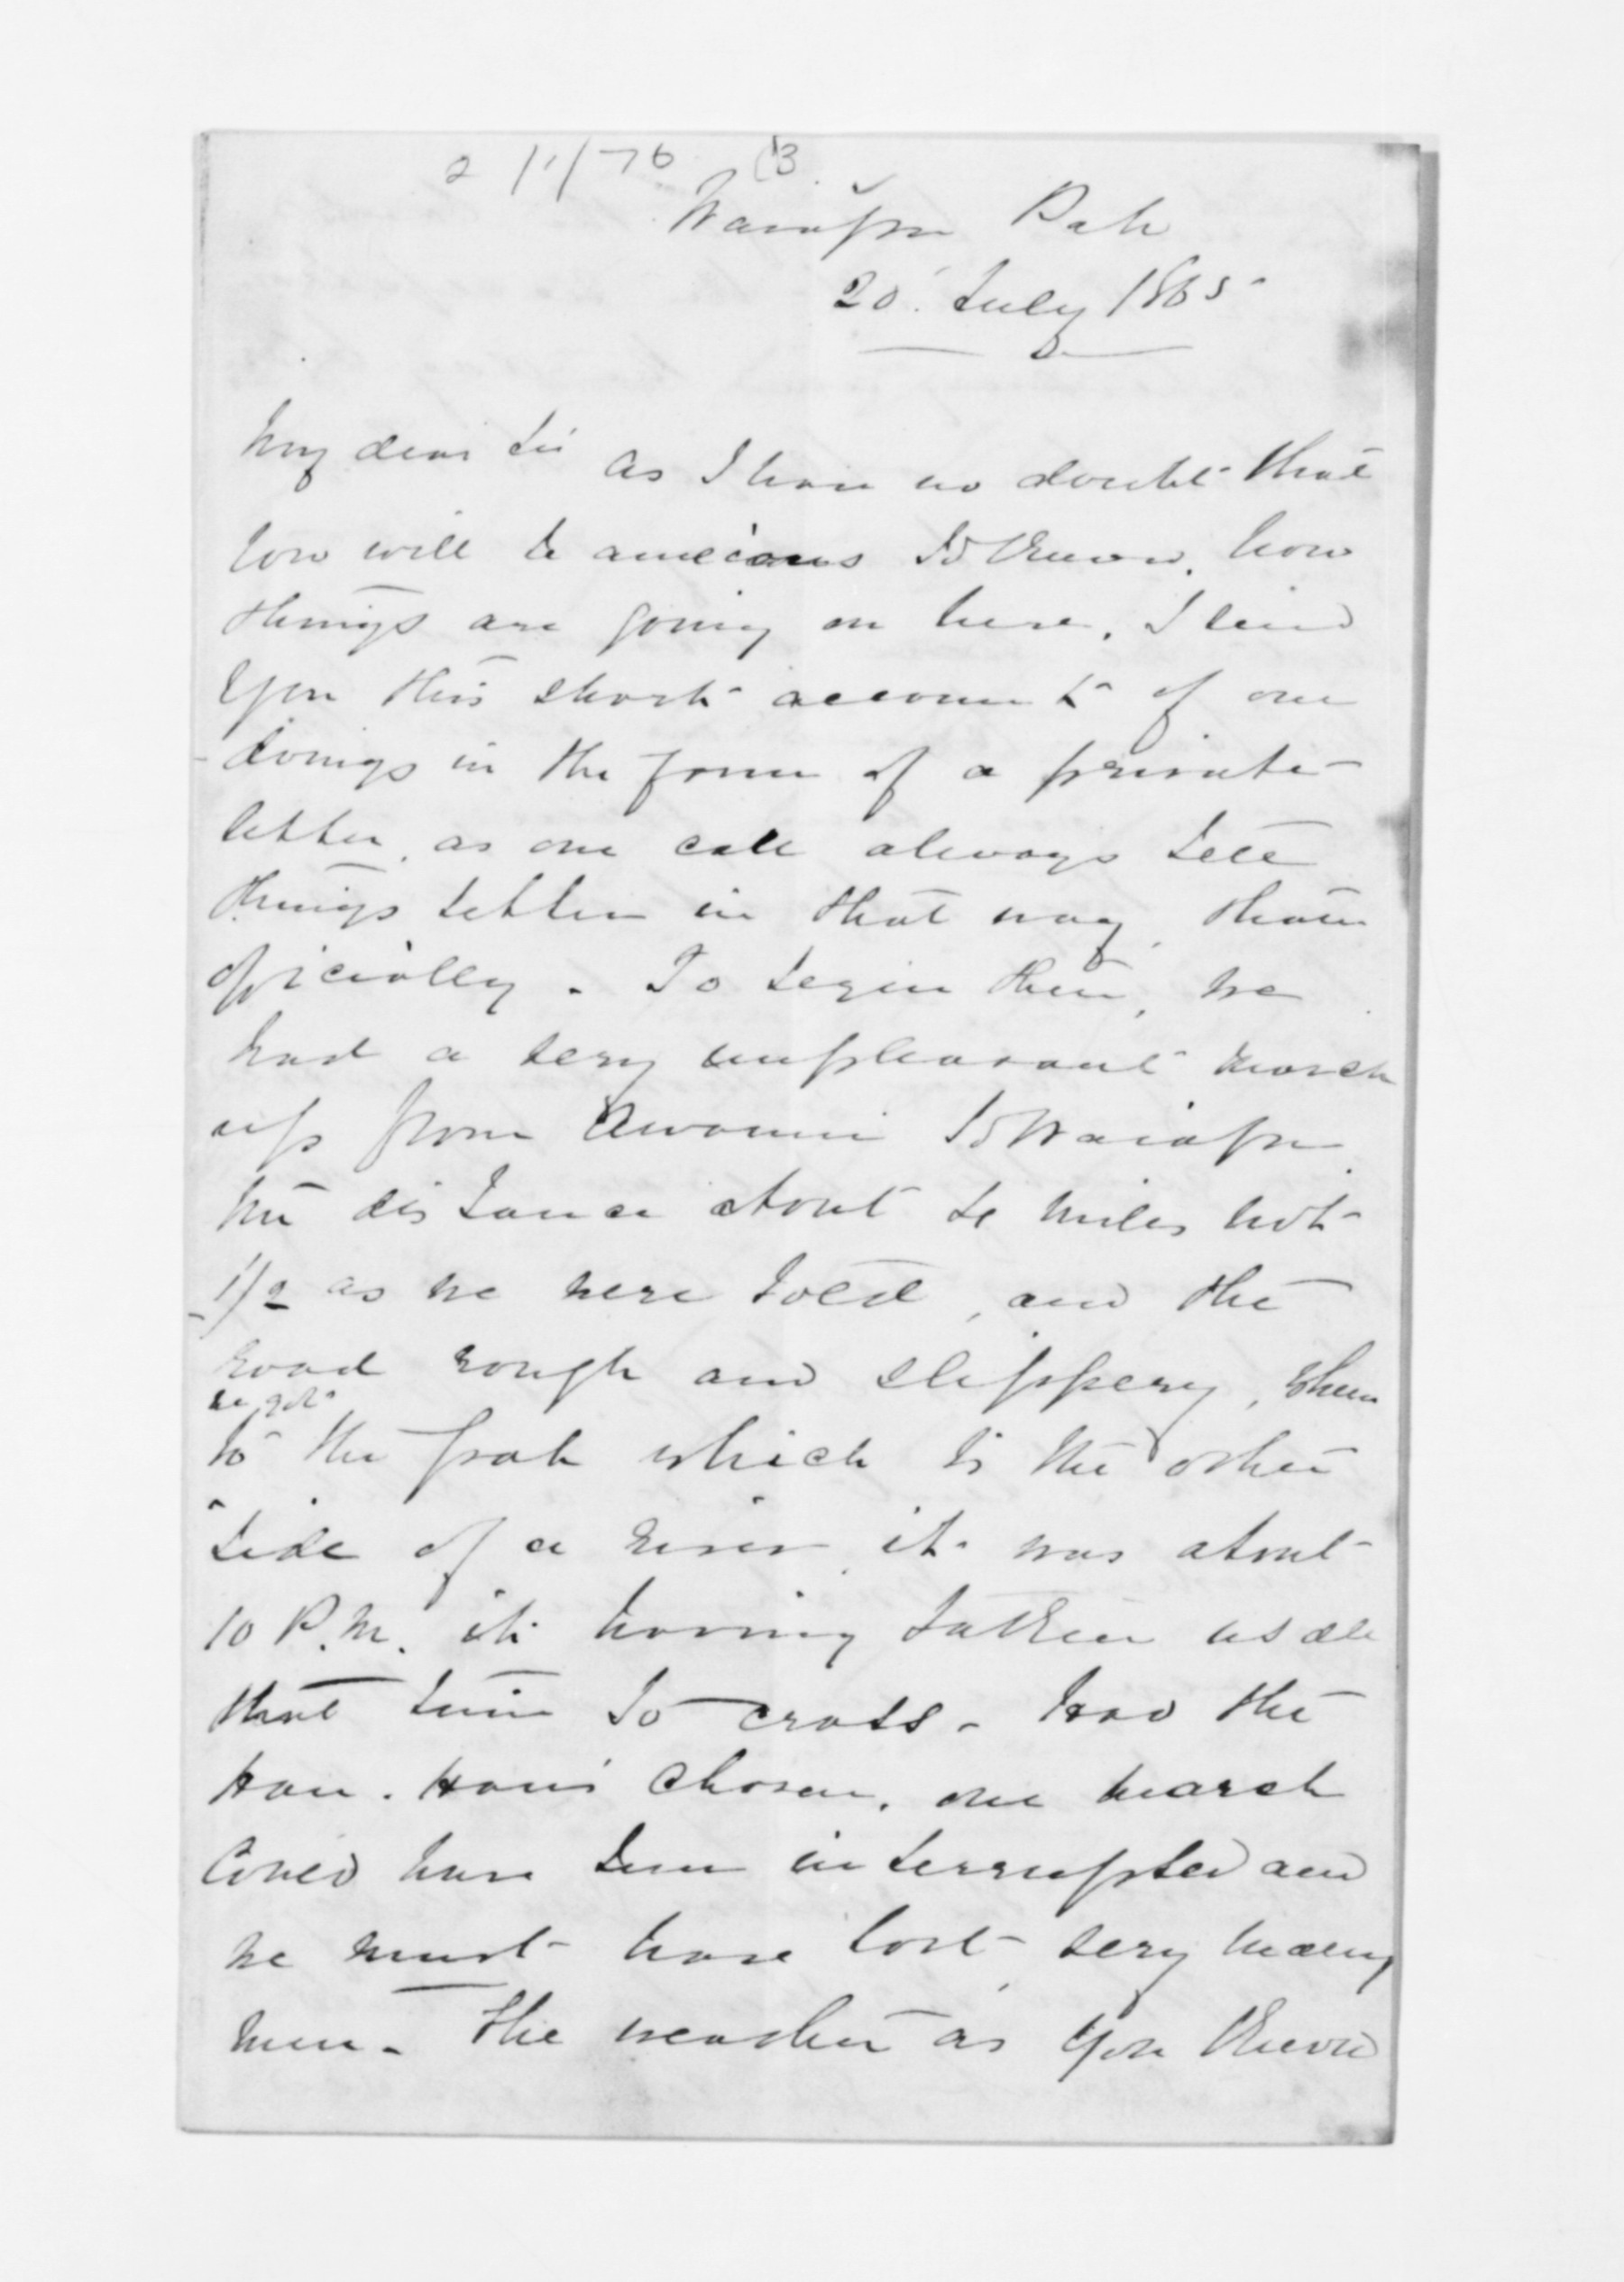 2/1/76 (3.
Waiapu Pah
20 July 1865
My dear Sir
As I have no doubt that
you will be anxious to know, how
things are going on here, I send
you this short account of our
doings in the form of a private
letter, as one can always tell
things better in that way, than
officially. To begin then, we
had a very unpleasant march
up from Awanui to Waiapu
the distance about 10 miles not
1/2 as we were told, and the
road rough and slippery, when
we got
to the pah which is the other
side of a river, it was about
10 P.M. it having taken us all
that time to cross. Had the
Hau. Haus chosen, our march
could have been interrupted and
we must have lost very many
men. The weather as you know